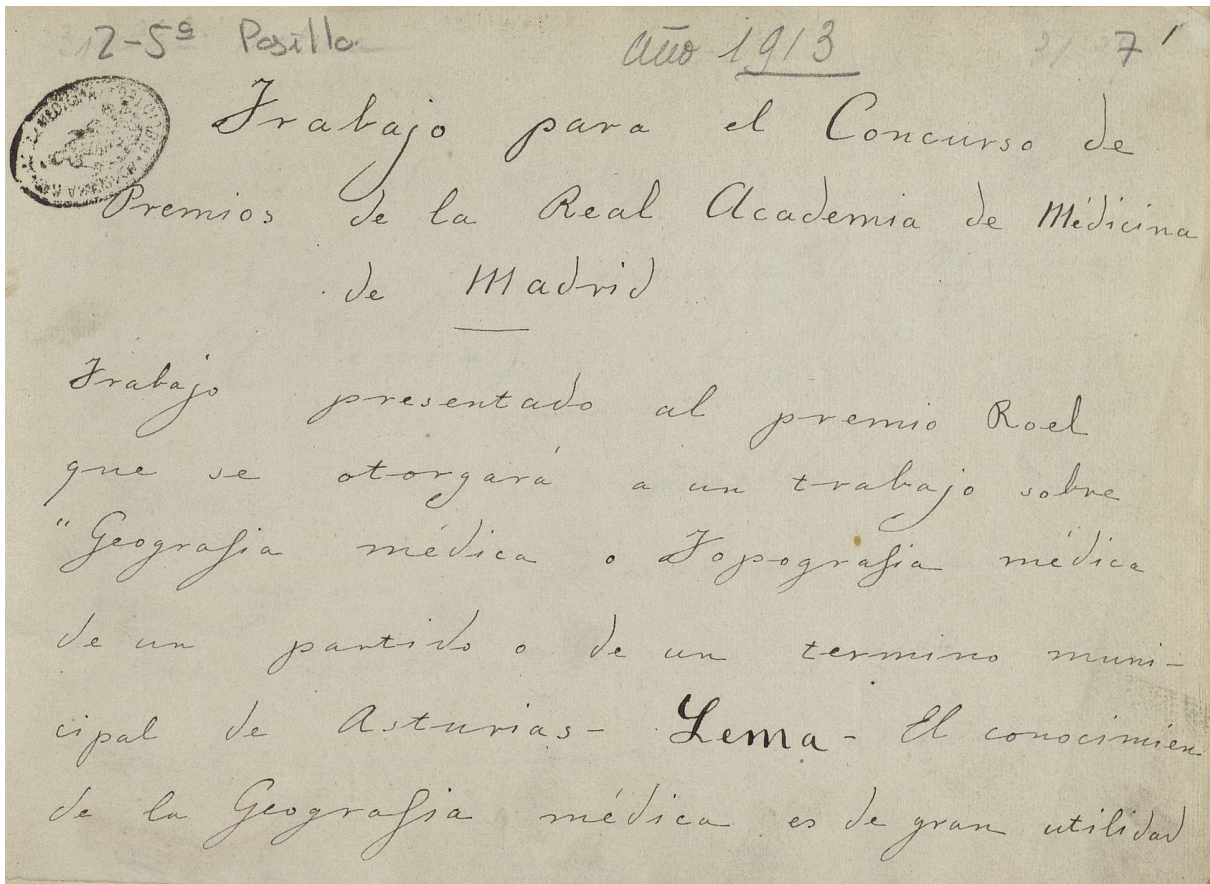 2-5ª Pasillo Año 1913 7
Trabajo para el Concurso de
Premios de la Real Academia de Médicina
de Madrid
Trabajo presentado al premio Roel
que se otorgará a un trabajo sobre
"Geografia médica o Topografia médica
de un partido o de un termino muni-
cipal de Asturias- Lema- El conocimien
de la Geografia médica es de gran utilidad